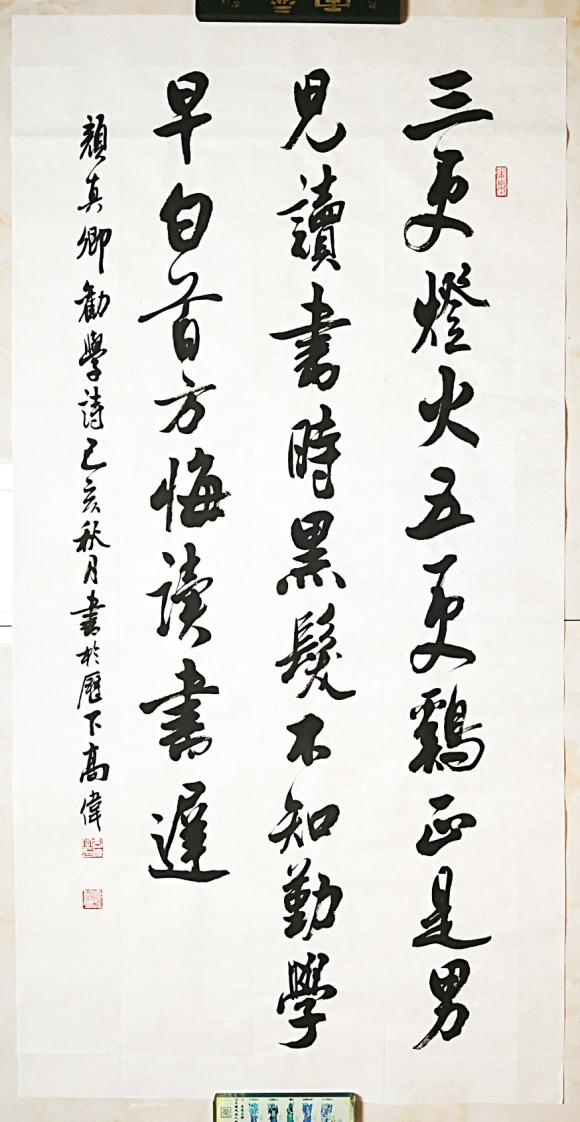 三更燈火五更鷄正是男
児讀書時黒髮不知勤學
早白首方悔读書遲
顏真卿勸學詩己亥秋月書於歷下高偉